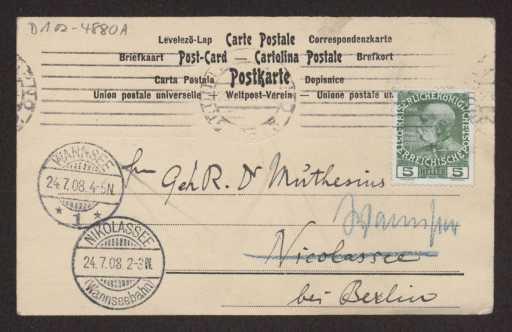 D 102-4880A
Levelező-Lap Carte Postale Correspondenzkarte
Briefkaart Post-Card — Cartolina Postale Brefkort
Carta Postala Postkarte Dopisnice
Union postale universelle Weltpost-Verein — Unione postale un.
KAISERLICHE KÖNIGLICHE
ÖSTERREICHISCHE
5 5
WANNSEE
24.7.08. 4-5N.
* 1 *
Geh R. Dr Muthesius
Wannsee
Nicolassee
bei Berlin
NIKOLASSEE
24.7.08. 2-3N.
(Wannseebahn)